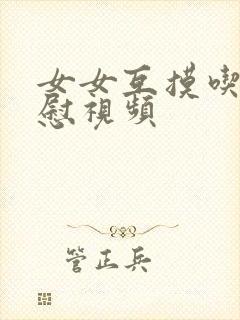 女女互摸喫
慰視頻
管正兵